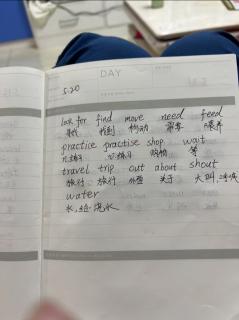 DAY
5.20
look for find move need feed
寻找 找到 移动 需要 喂养
practice practise shop wait
n.练习 v.练习 购物 等
travel trip out about shout
旅行 旅行 外面 关于 大叫,
water
水,给…浇水